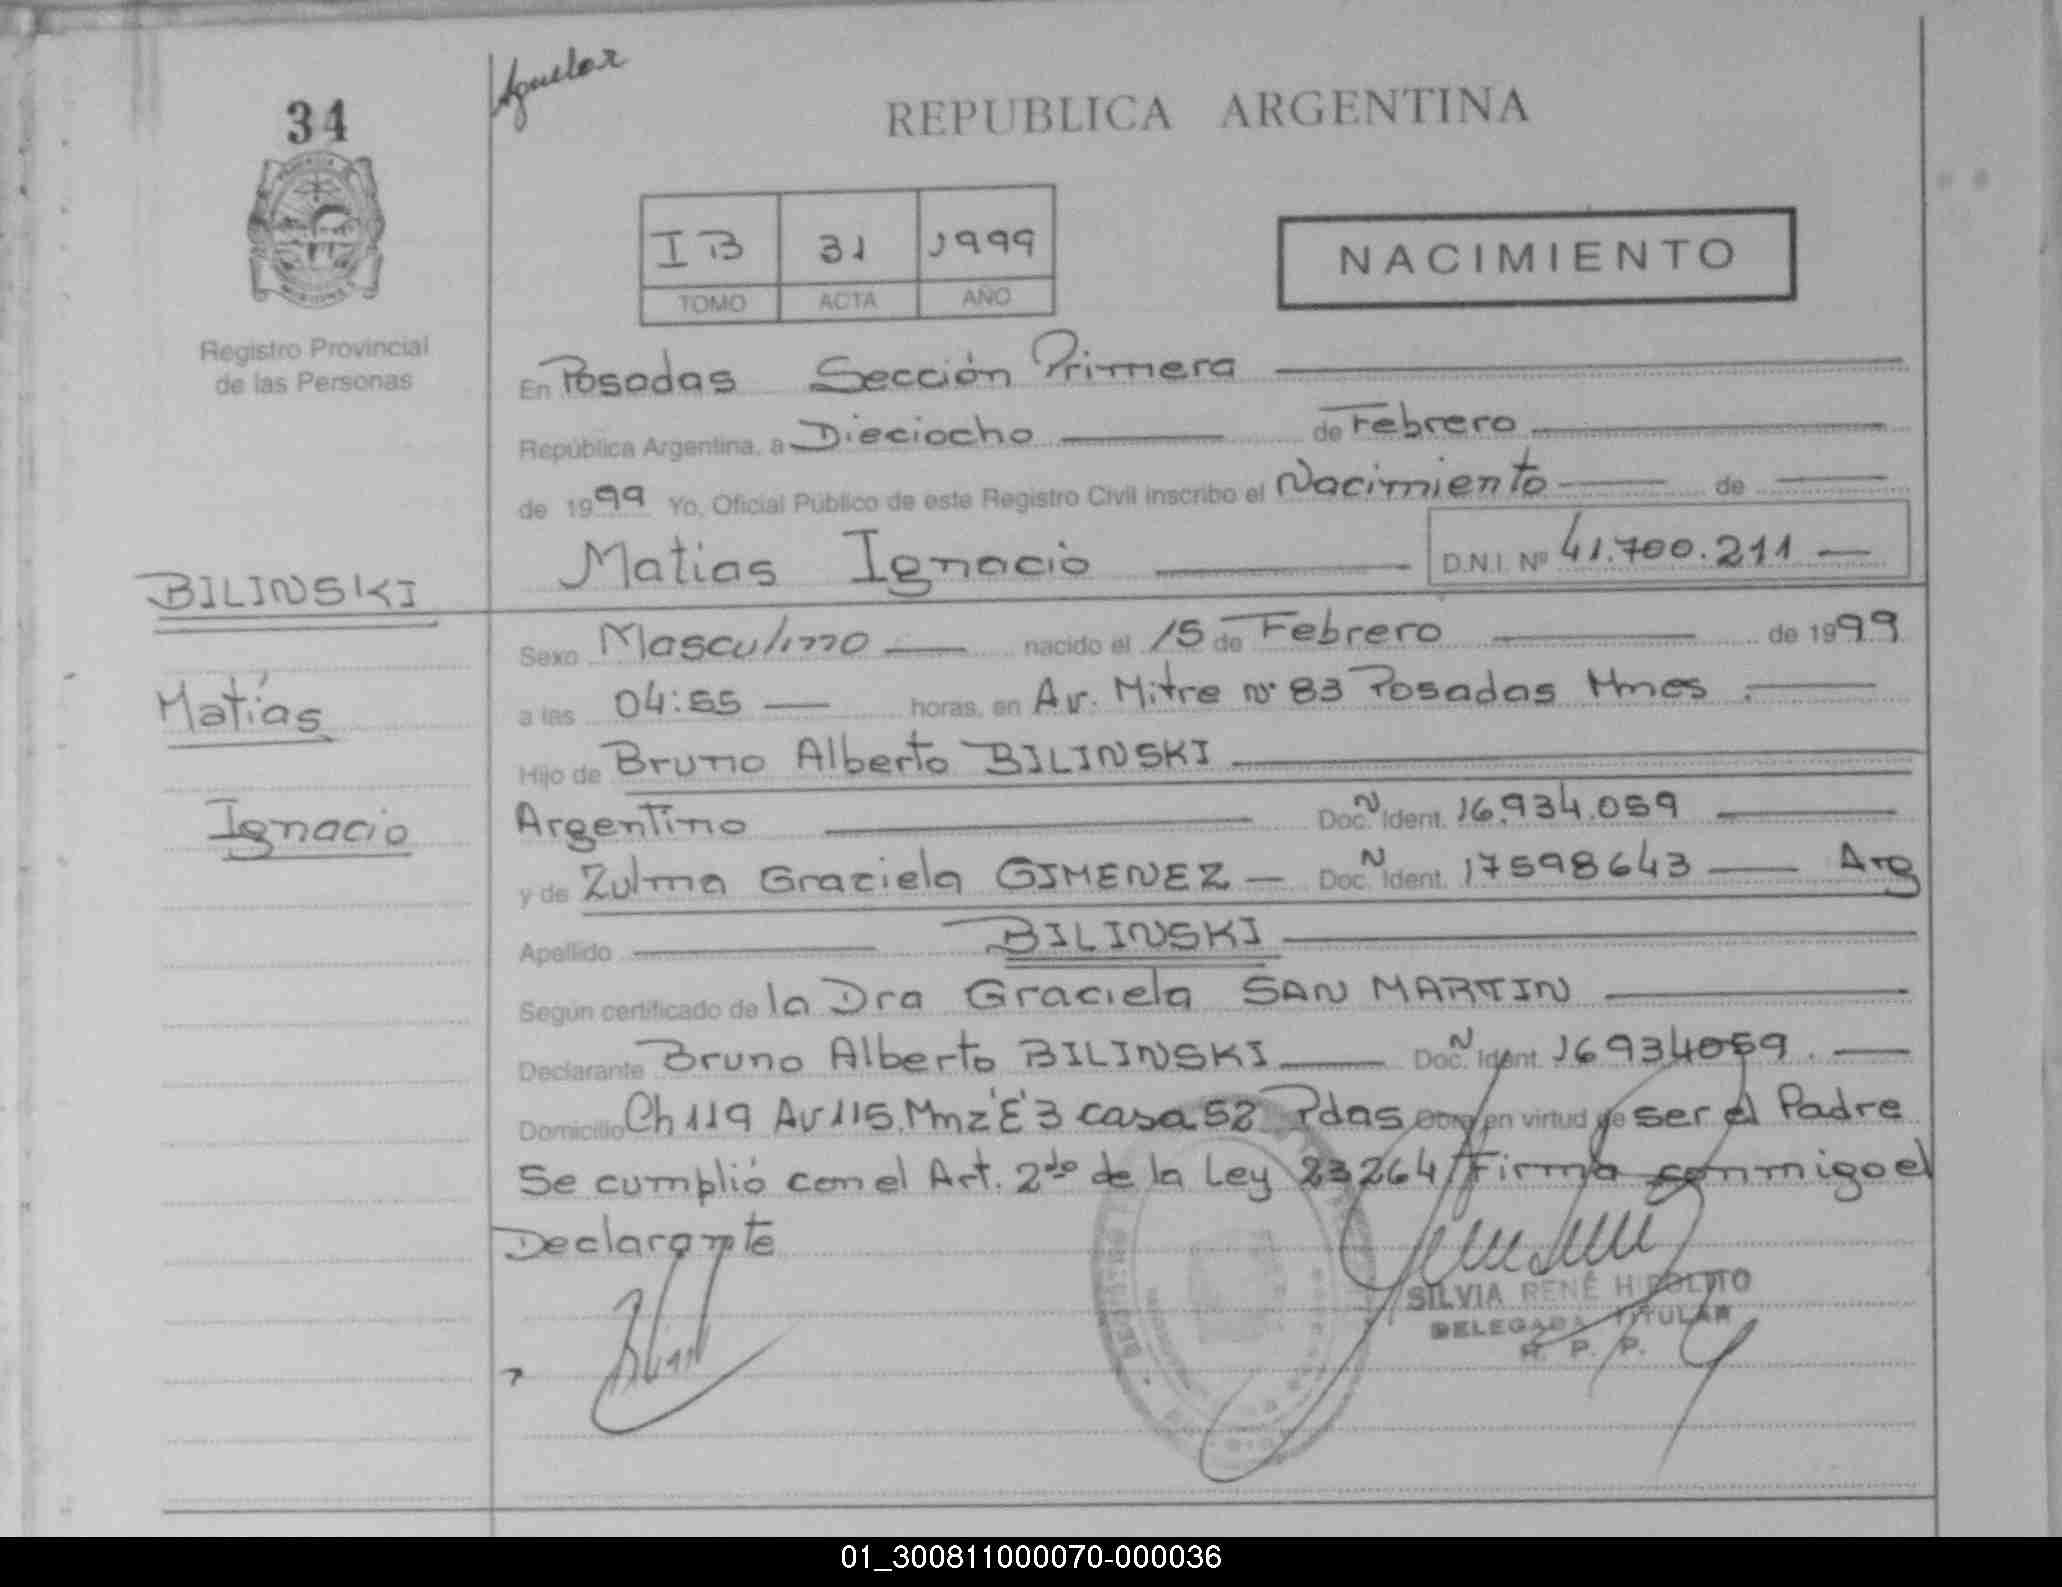 Aguelar
34
REPUBLICA ARGENTINA
IB 31 1999
TOMO ACTA AÑO
NACIMIENTO
Registro Provincial
de las Personas
En Posadas Sección Primera
República Argentina, a Dieciocho de Febrero
de 1999 Yo, Oficial Público de este Registro Civil inscribo el Nacimiento de
Matias Ignacio D.N.I. Nº 41.700.211
BILINSKI
Matías
Ignacio
Sexo Masculino nacido el 15 de Febrero de 1999
a las 04:55 horas, en Av. Mitre nº 83 Posadas Mnes
Hijo de Bruno Alberto BILINSKI
Argentino Doc. N Ident. 16.934.059
y de Zulma Graciela GIMENEZ Doc. N Ident. 17598643 Arg
Apellido BILINSKI
Según certificado de la Dra Graciela SAN MARTIN
Declarante Bruno Alberto BILINSKI Doc. N Ident. 16934059
Domicilio Ch 119 Av 115 Mnz "E" 3 casa 52 Pdas Obra en virtud de ser el Padre
Se cumplió con el Art. 2do de la Ley 23264 Firma conmigo el
Declarante
SILVIA RENÉ HIPOLITO
DELEGADA TITULAR
R. P. P.
01_300811000070-000036